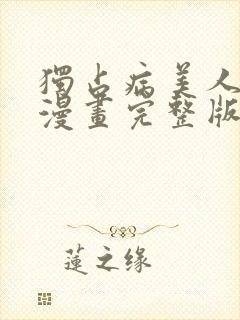 獨占病美人
漫畫完整版
蓮之缘